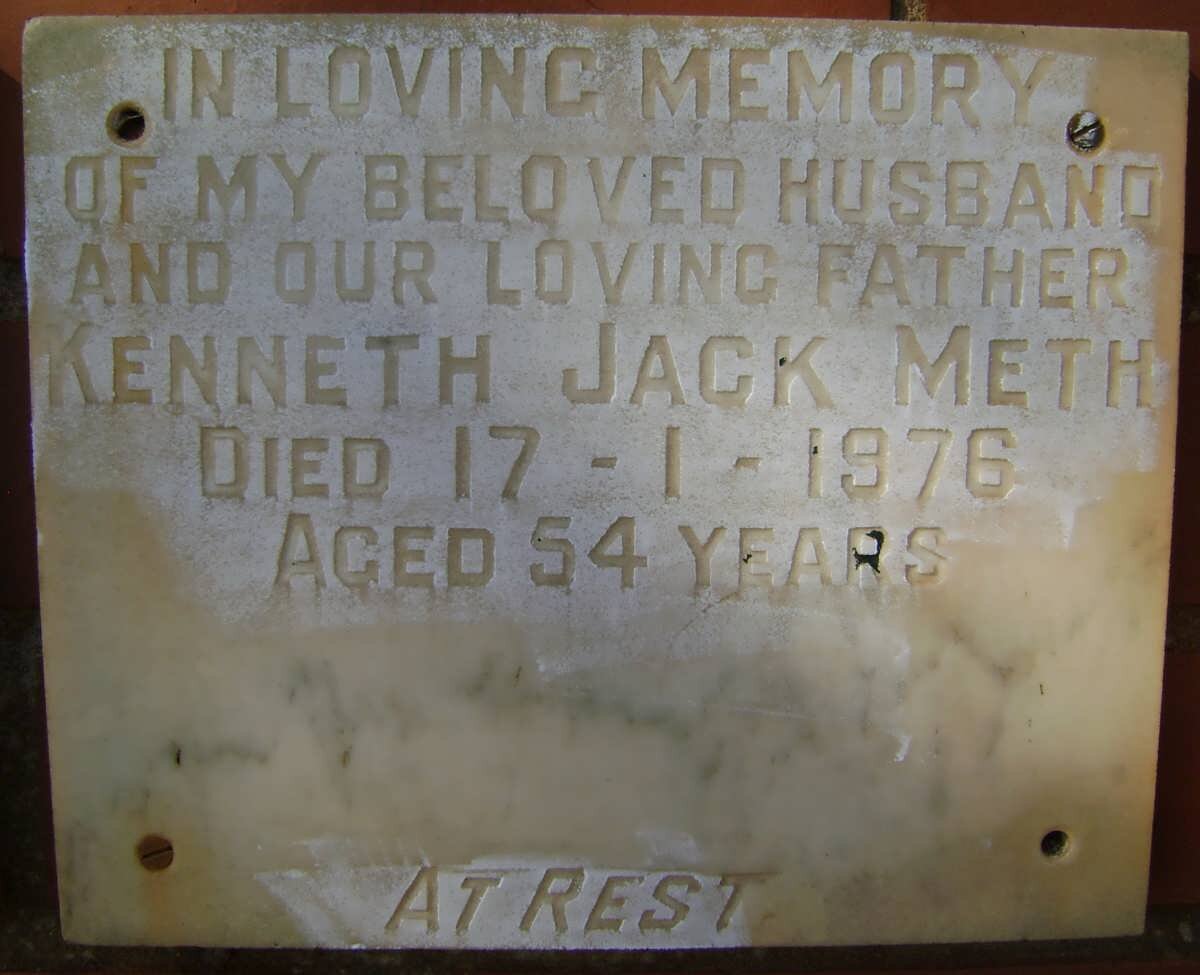 IN LOVING MEMORY
OF MY BELOVED HUSBAND
AND OUR LOVING FATHER
KENNETH JACK METH
DIED 17 - 1 - 1976
AGED 54 YEARS
AT REST